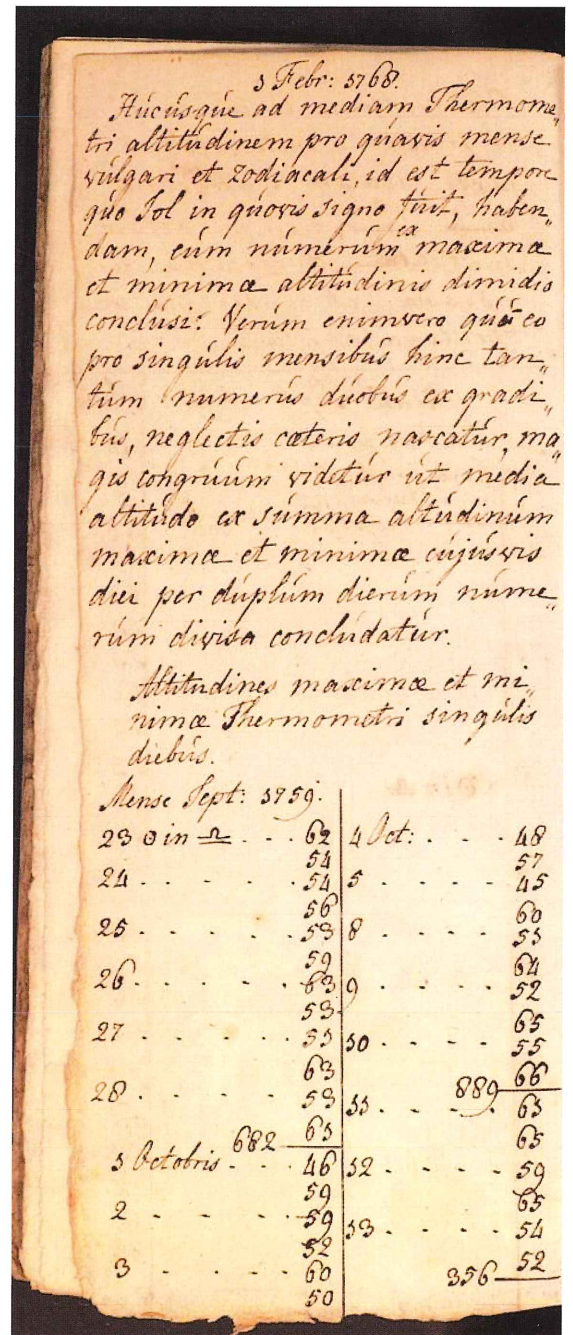 1 Febr: 1768.
Hucúsqúe ad mediam Thermome„
tri altitúdinem pro qúavis mense
vúlgari et zodiacali, id est tempore
qúo Sol in qúovis signo fúit, haben„
dam, eúm númerúm ex maximæ
et minimæ altitúdinis dimidio
conclúsi: Verúm enimvero qúú eo
pro singúlis mensibús hinc tan„
túm numerús dúobús ex gradi„
bús, neglectis cæteris nascatúr, ma„
gis congrúúm videtúr út media
altitúdo ex súmma altúdinúm
maximæ et minimæ cújúsvis
diei per dúplúm dierúm núme„
rúm divisa conclúdatúr.
Altitudines maximæ et mi„
nimæ Thermometri singúlis
diebús.
Mense Sept: 1759.
23 ☉ in ♎ . . . 62
54
24 . . . . . 54
56
25 . . . . . 53
59
26 . . . . . 63
53
27 . . . . . 51
63
28 . . . . . 53
682 61
1 Octobris . . . 46
59
2 . . . . . 59
52
3 . . . . . 60
50
4 Oct: . . . 48
57
5 . . . . 45
60
8 . . . . 51
64
9 . . . . 52
65
10 . . . . 55
889 66
11 . . . . 61
65
12 . . . . 59
65
13 . . . . 54
356 52